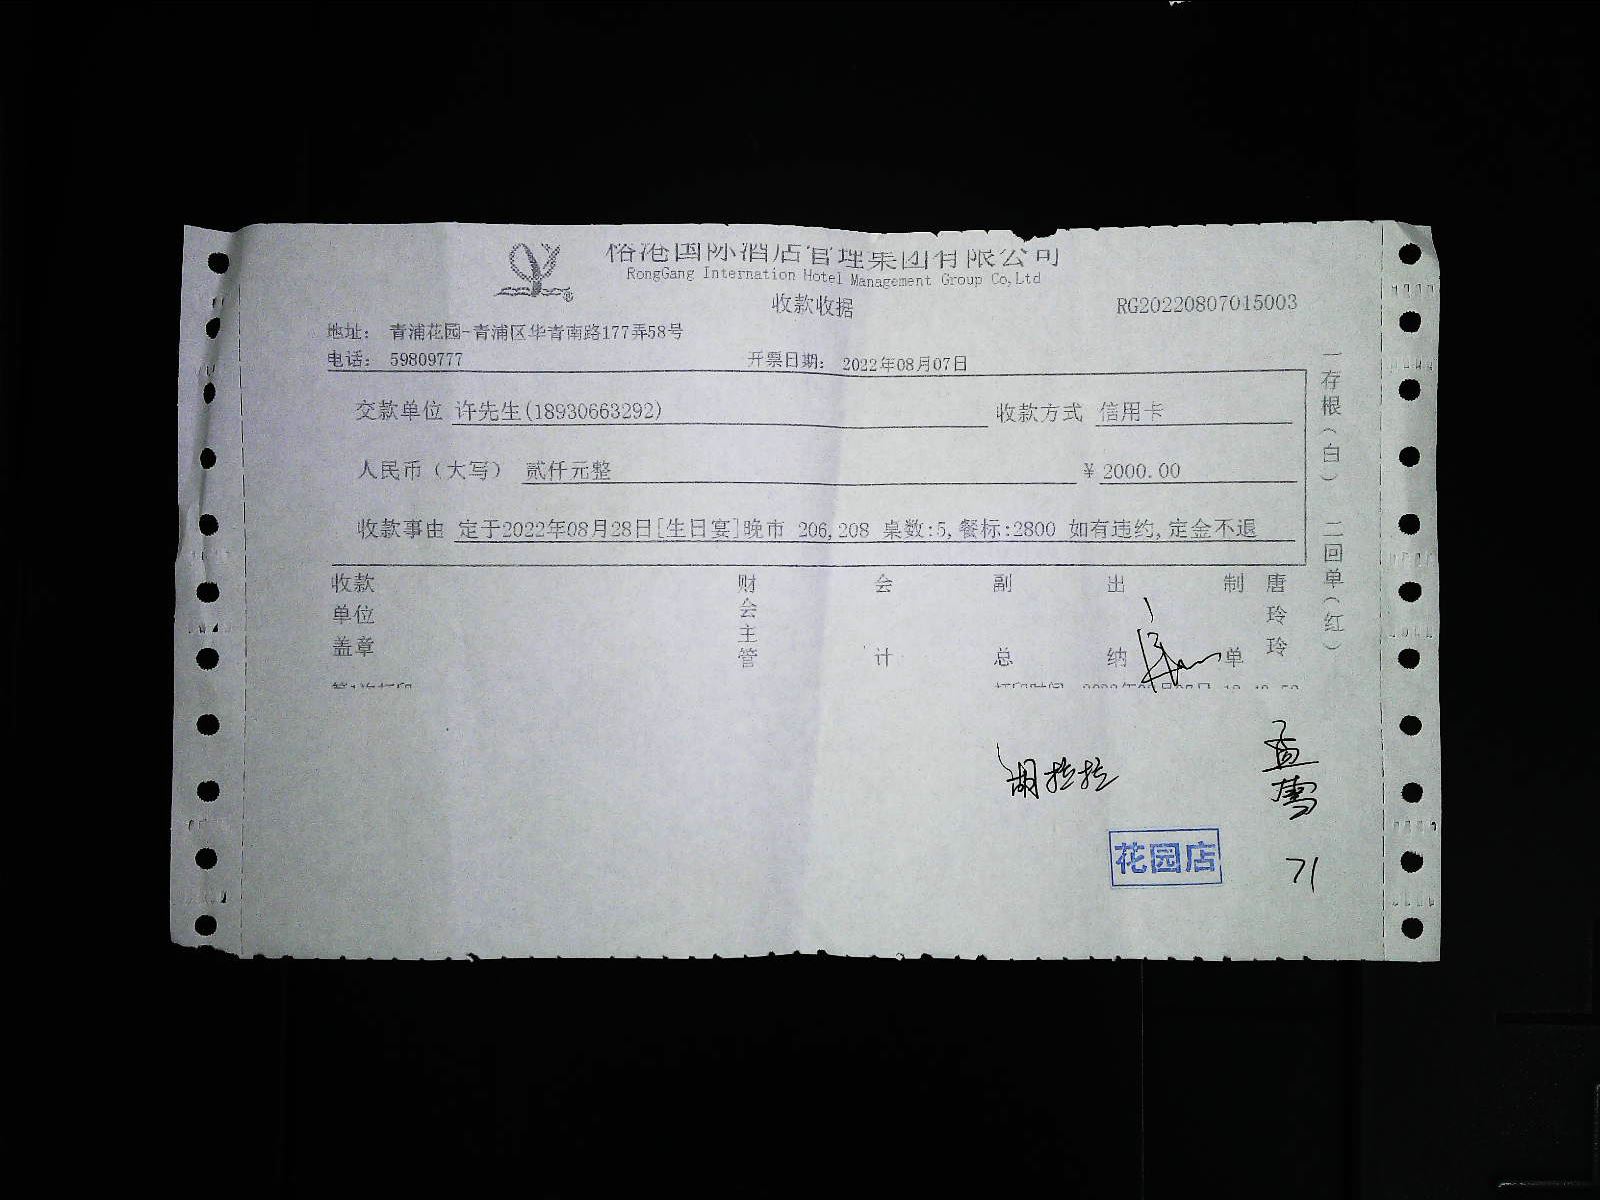 榕港国际酒店管理集团有限公司
RongGang Internation Hotel Management Group Co,Ltd
收款收据
RG20220807015003
地址: 青浦花园-青浦区华青南路177弄58号
电话: 59809777 开票日期: 2022年08月07日
交款单位 许先生(18930663292) 收款方式 信用卡
人民币(大写) 贰仟元整 ¥ 2000.00
收款事由 定于2022年08月28日[生日宴]晚市 206,208 桌数:5,餐标:2800 如有违约,定金不退
收款单位盖章 财会主管 会计 副总 出纳 制单 唐玲玲
一存根(白) 二回单(红)
胡拉拉
孟雪
71
花园店